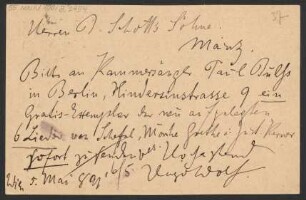 Herren B. Schotts Söhne
Mainz.
Bitte an Kammersänger Paul Bulss
in Berlin, Hindersinstrasse 9 ein
Gratis-Exemplar der neu aufgelegten
6 Lieder von Scheffel, Mörike, Goethe u. Just. Kerner
sofort zusenden. Hochachtend
Wien 5. Mai 891 Hugo Wolf.